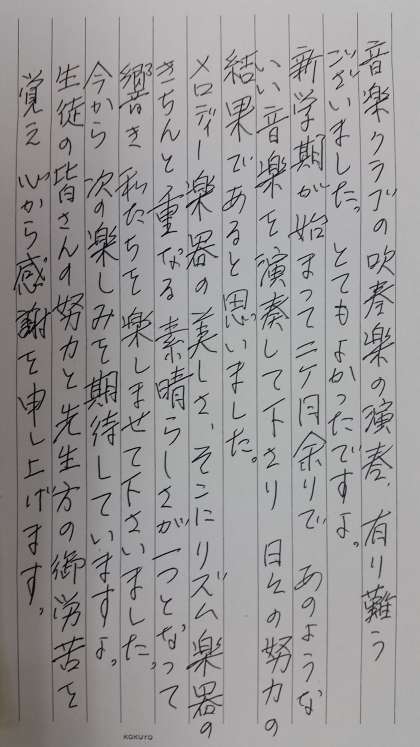 音楽クラブの吹奏楽の演奏、有り難う
ございました。とてもよかったですよ。
新学期が始まって二ケ月余りで あのような
いい音楽を演奏して下さり 日々の努力の
結果であると思いました。
メロディー楽器の美しさ、そこにリズム楽器の
きちんと重なる素晴らしさが一つとなって
響き 私たちを楽しませて下さいました。
今から 次の楽しみを期待していますよ。
生徒の皆さんの努力と先生方の御労苦を
覚え 心から感謝を申し上げます。
KOKUYO